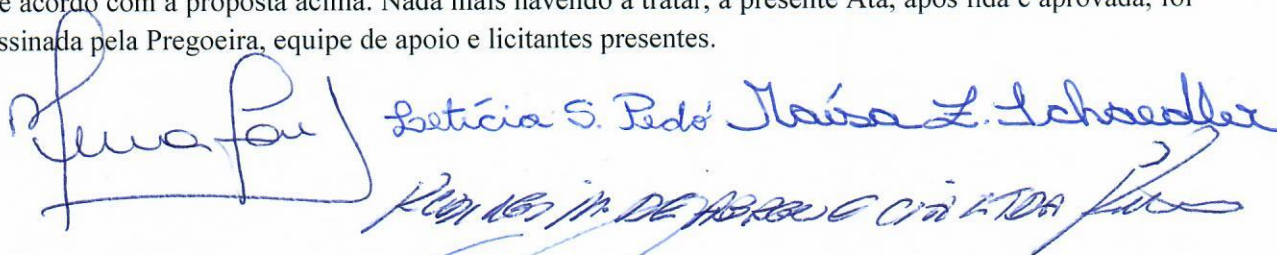 e acordo com a proposta acima. Nada mais havendo a tratar, a presente Ata, após lida e aprovada, foi
ssinada pela Pregoeira, equipe de apoio e licitantes presentes.
Letícia S. Pedó Maísa Z. Schaedler
DE ABREU E CIA LTDA